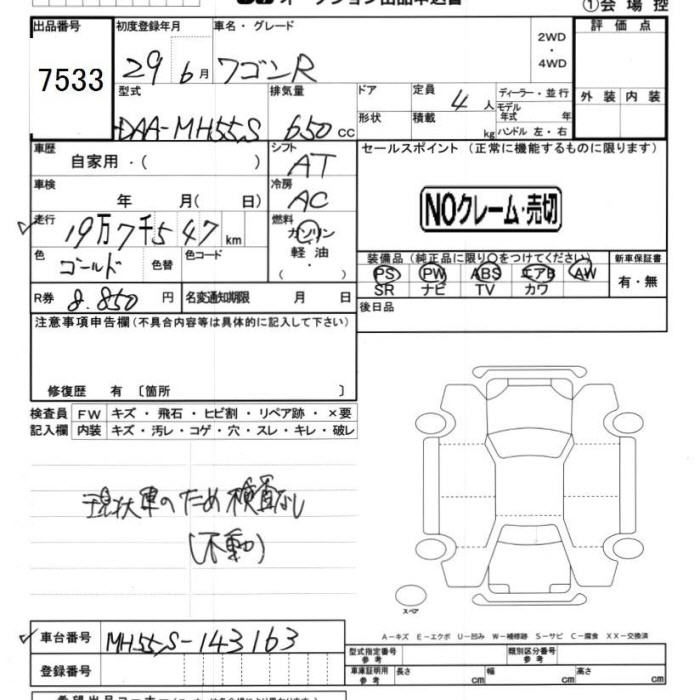 オークション出品申込書
①会場控
出品番号 7533
初度登録年月 29 6月
車名・グレード ワゴンR
2WD・4WD
評価点
型式 DAA-MH55S
排気量 650 cc
ドア
形状
定員 4 人
積載 kg
ディーラー・並行
モデル年式 年
ハンドル 左・右
外装 内装
車歴 自家用・( )
シフト AT
セールスポイント(正常に機能するものに限ります)
車検 年 月( 日)
冷房 AC
NOクレーム・売切
走行 19万7千547km
燃料 ガソリン 軽油 ( ・ )
色 ゴールド 色替 色コード
装備品(純正品に限り○をつけてください)
新車保証書
PS PW ABS エアB AW
SR ナビ TV カワ
有・無
R券 8.850 円
名変通知期限 月 日
後日品
注意事項申告欄(不具合内容等は具体的に記入して下さい)
修復歴 有 〔箇所 〕
検査員 FW キズ・飛石・ヒビ割・リペア跡・×要
記入欄 内装 キズ・汚レ・コゲ・穴・スレ・キレ・破レ
現状車のため検査なし
(不動)
スペア
A-キズ E-エクボ U-凹み W-補修跡 S-サビ C-腐食 XX-交換済
車台番号 MH55S-143163
登録番号
型式指定番号 参考
類別区分番号 参考
車庫証明用 参考 長さ cm 幅 cm 高さ cm